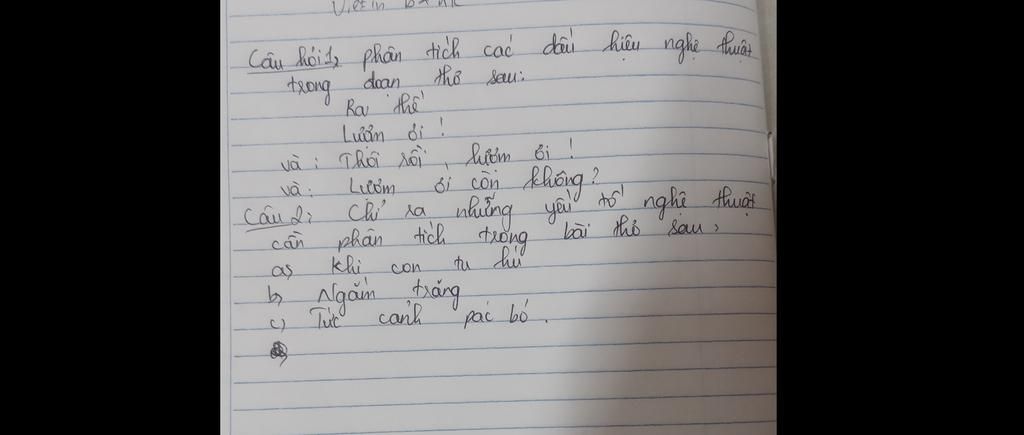 Câu hỏi 1, phân tích các dấu hiệu nghệ thuật
trong đoạn thơ sau:
Ra thế
Lượm ơi!
và: Thôi rồi, lượm ơi!
và: Lượm ơi còn không?
Câu 2: Chỉ ra những yếu tố nghệ thuật
cần phân tích trong bài thơ sau,
a, khi con tu hú
b, Ngắm trăng
c) Tức cảnh pác bó.